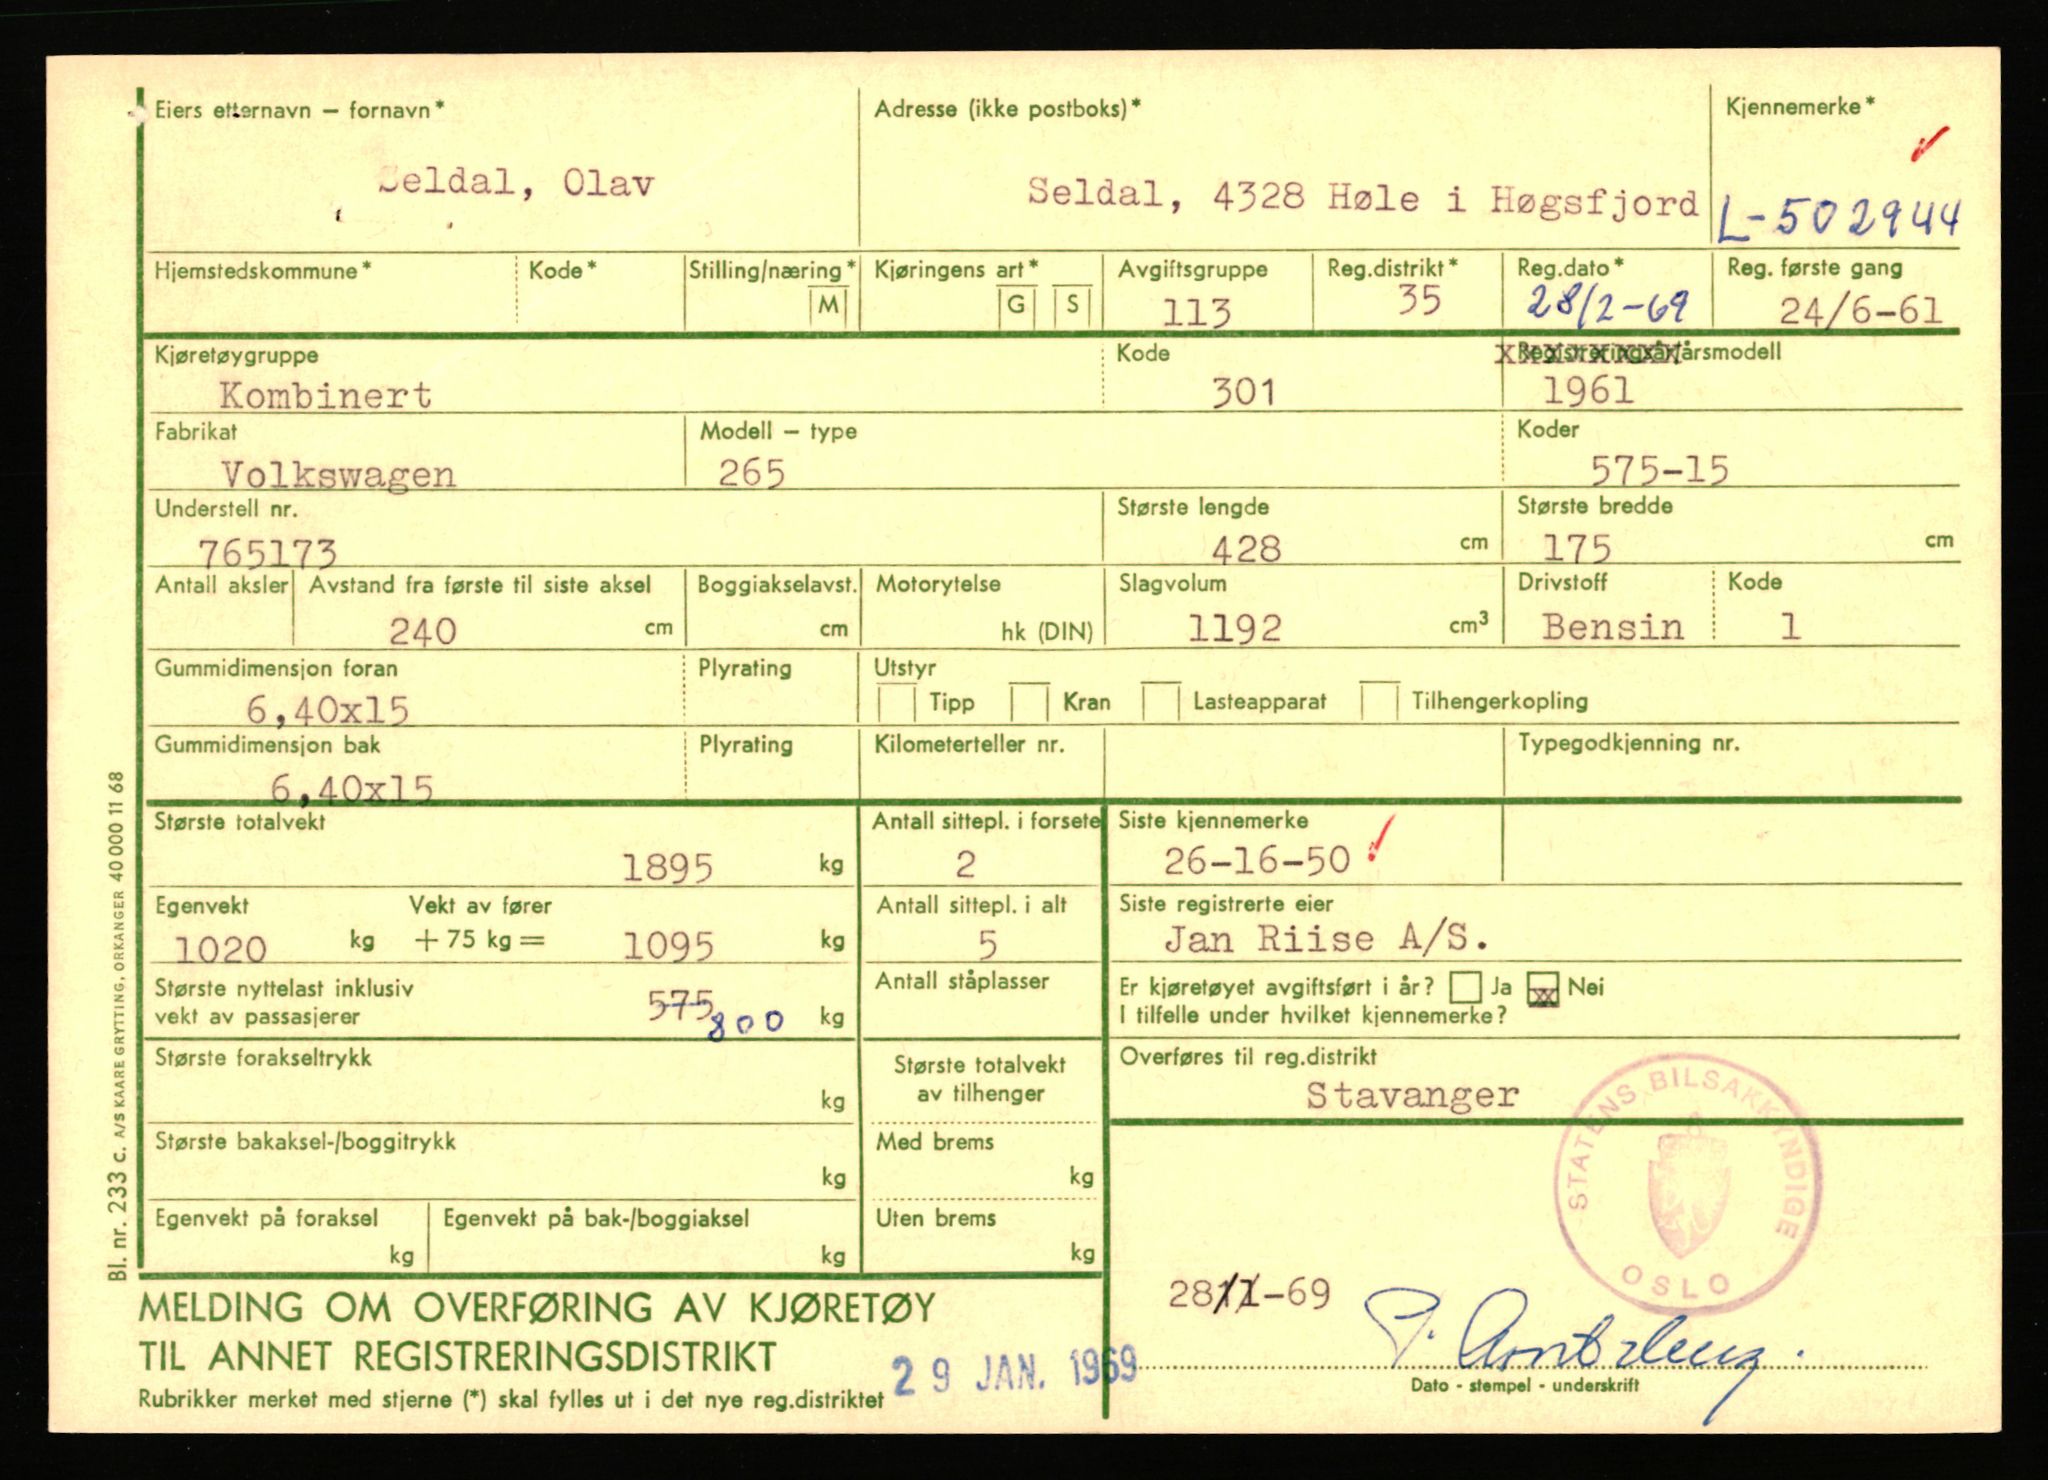 Eiers etternavn – fornavn* Adresse (ikke postboks)* Kjennemerke*
Seldal, Olav Seldal, 4328 Høle i Høgsfjord L-502944
Hjemstedskommune* Kode* Stilling/næring* Kjøringens art* Avgiftsgruppe Reg.distrikt* Reg.dato* Reg. første gang
M G S 113 35 28/2-69 24/6-61
Kjøretøygruppe Kode Registreringsår/årsmodell
Kombinert 301 1961
Fabrikat Modell – type Koder
Volkswagen 265 575-15
Understell nr. Største lengde Største bredde
765173 428 cm 175 cm
Antall aksler Avstand fra første til siste aksel Boggiakselavst. Motorytelse Slagvolum Drivstoff Kode
240 cm cm hk (DIN) 1192 cm³ Bensin 1
Gummidimensjon foran Plyrating Utstyr
6,40x15 Tipp Kran Lasteapparat Tilhengerkopling
Gummidimensjon bak Plyrating Kilometerteller nr. Typegodkjenning nr.
6,40x15
Største totalvekt Antall sittepl. i forsete Siste kjennemerke
1895 kg 2 26-16-50
Egenvekt Vekt av fører Antall sittepl. i alt Siste registrerte eier
1020 kg + 75 kg = 1095 kg 5 Jan Riise A/S.
Største nyttelast inklusiv 575 Antall ståplasser Er kjøretøyet avgiftsført i år? Ja xx Nei
vekt av passasjerer 800 kg I tilfelle under hvilket kjennemerke?
Største forakseltrykk Største totalvekt Overføres til reg.distrikt
kg av tilhenger Stavanger
Største bakaksel-/boggitrykk Med brems
kg kg
Egenvekt på foraksel Egenvekt på bak-/boggiaksel Uten brems
kg kg kg
STATENS BILSAKKYNDIGE
OSLO
MELDING OM OVERFØRING AV KJØRETØY
28/1-69
TIL ANNET REGISTRERINGSDISTRIKT
29 JAN. 1969
Rubrikker merket med stjerne (*) skal fylles ut i det nye reg.distriktet
Dato - stempel - underskrift
Bl. nr. 233 c. A/S KAARE GRYTTING, ORKANGER 40 000 11 68